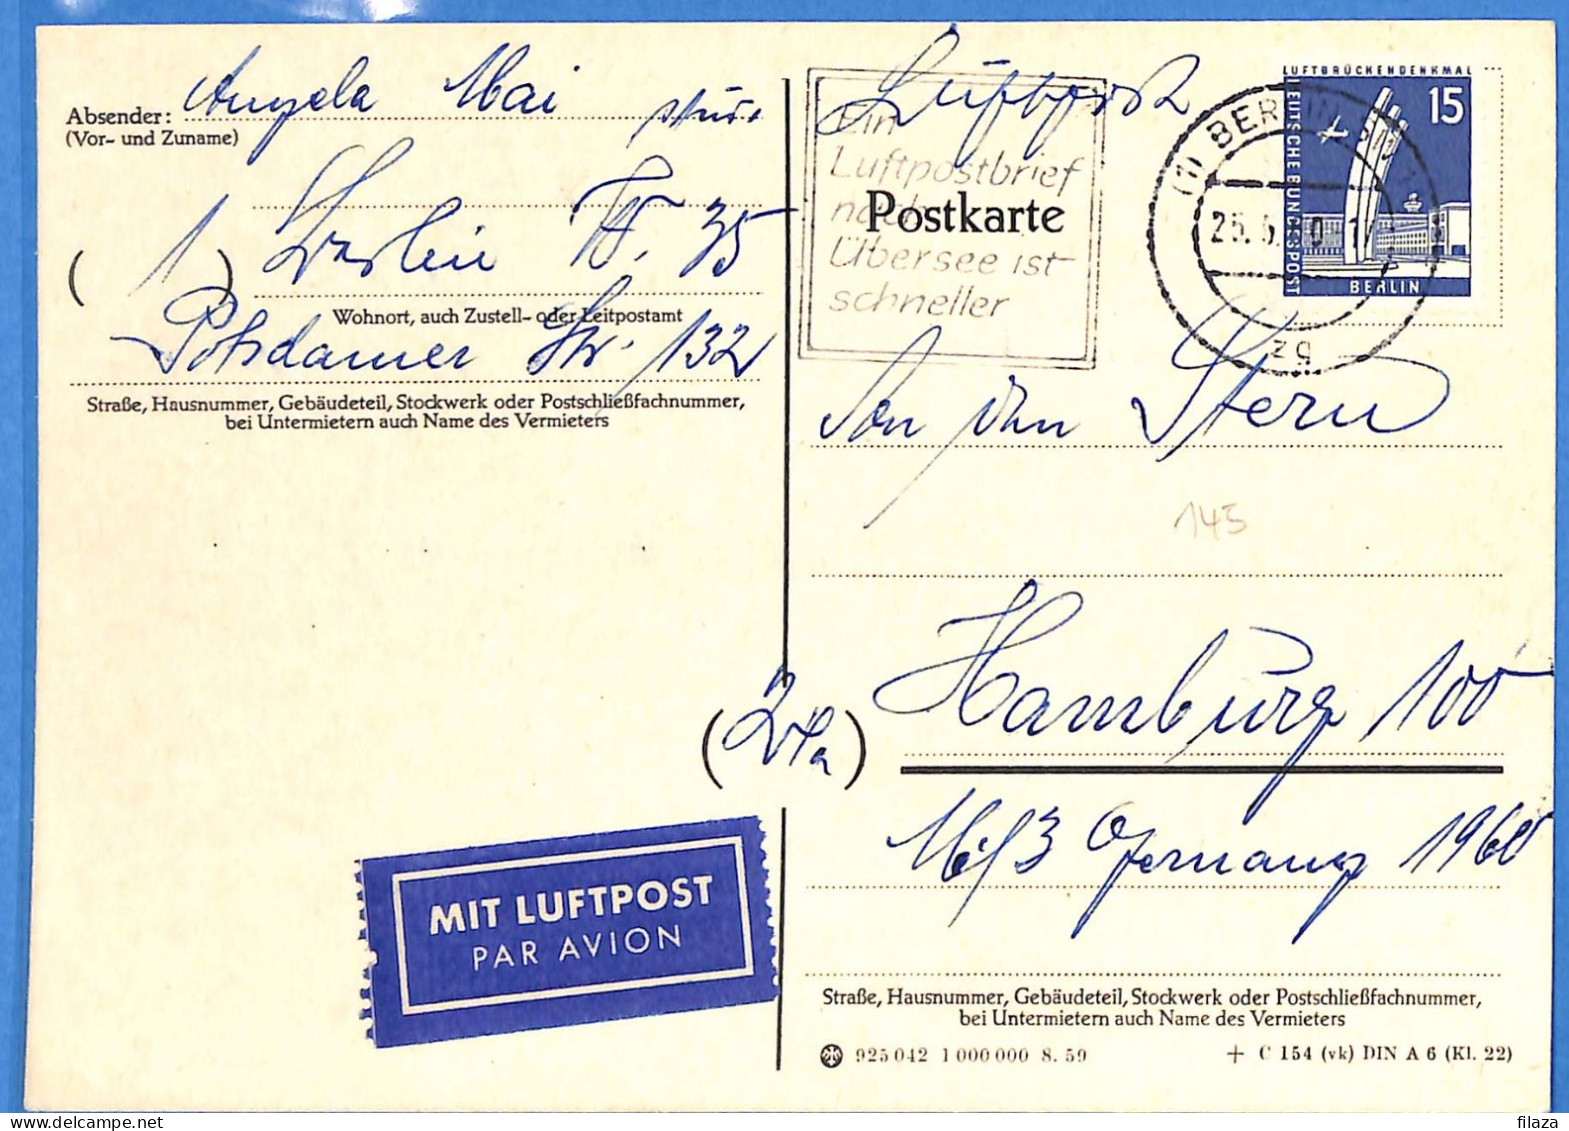 Absender: Angela Mai
(Vor- und Zuname)
(1) Berlin W. 35
Wohnort, auch Zustell- oder Leitpostamt
Potsdamer Str. 132
Straße, Hausnummer, Gebäudeteil, Stockwerk oder Postschließfachnummer,
bei Untermietern auch Name des Vermieters
Luftpost
Ein
Luftpostbrief
nach
Übersee ist
schneller
Postkarte
LUFTBRÜCKENDENKMAL
15
DEUTSCHE BUNDESPOST
BERLIN
(1) BERLIN
zg
Stern
145
(24a) Hamburg 100
1960
Straße, Hausnummer, Gebäudeteil, Stockwerk oder Postschließfachnummer,
bei Untermietern auch Name des Vermieters
925042 1 000 000 8. 59
+ C 154 (vk) DIN A 6 (Kl. 22)
MIT LUFTPOST
PAR AVION
filaza